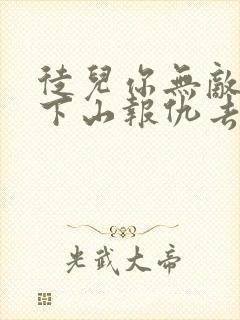 徒兒你無敵
下山報仇去
光武大帝